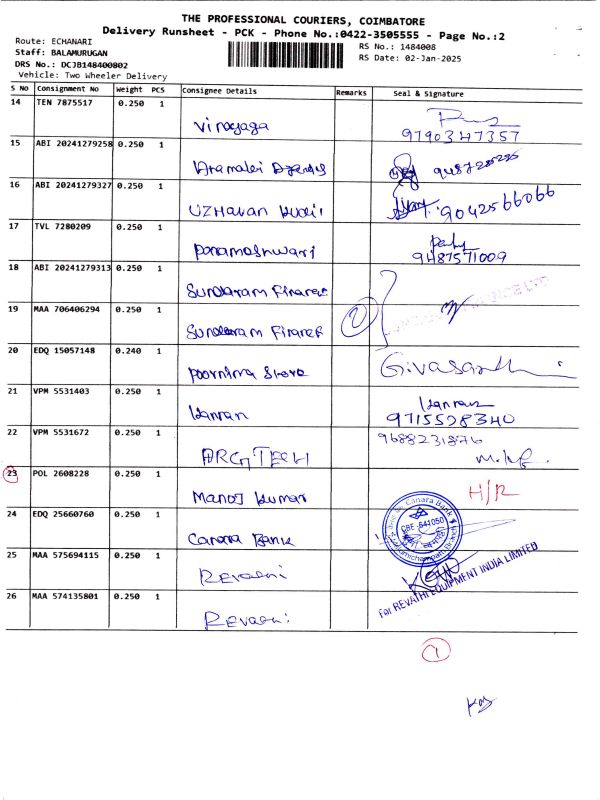 THE PROFESSIONAL COURIERS, COIMBATORE
Delivery Runsheet - PCK - Phone No.:0422-3505555 - Page No.:2
Route: ECHANARI
RS No.: 1484008
Staff: BALAMURUGAN
RS Date: 02-Jan-2025
DRS No.: DCJB148400802
Vehicle: Two Wheeler Delivery
S No Consignment No Weight PCS Consignee Details Remarks Seal & Signature
14 TEN 7875517 0.250 1
Vinayaga 9790347357
15 ABI 20241279258 0.250 1
16 ABI 20241279327 0.250 1
UZHavan 9042566066
17 TVL 7280209 0.250 1
Parameshwari 9487571009
18 ABI 20241279313 0.250 1
Sundaram Finance
19 MAA 706406294 0.250 1
Sundaram Finance
2
20 EDQ 15057148 0.240 1
Poornima Store
21 VPM 5531403 0.250 1
9715528340
22 VPM 5531672 0.250 1
9688231876
ARG TECH
23 POL 2608228 0.250 1
Manoj kumar H/R
24 EDQ 25660760 0.250 1
Canara Bank
CBE-641050
25 MAA 575694115 0.250 1
Revathi
For REVATHI EQUIPMENT INDIA LIMITED
26 MAA 574135801 0.250 1
Revathi
1